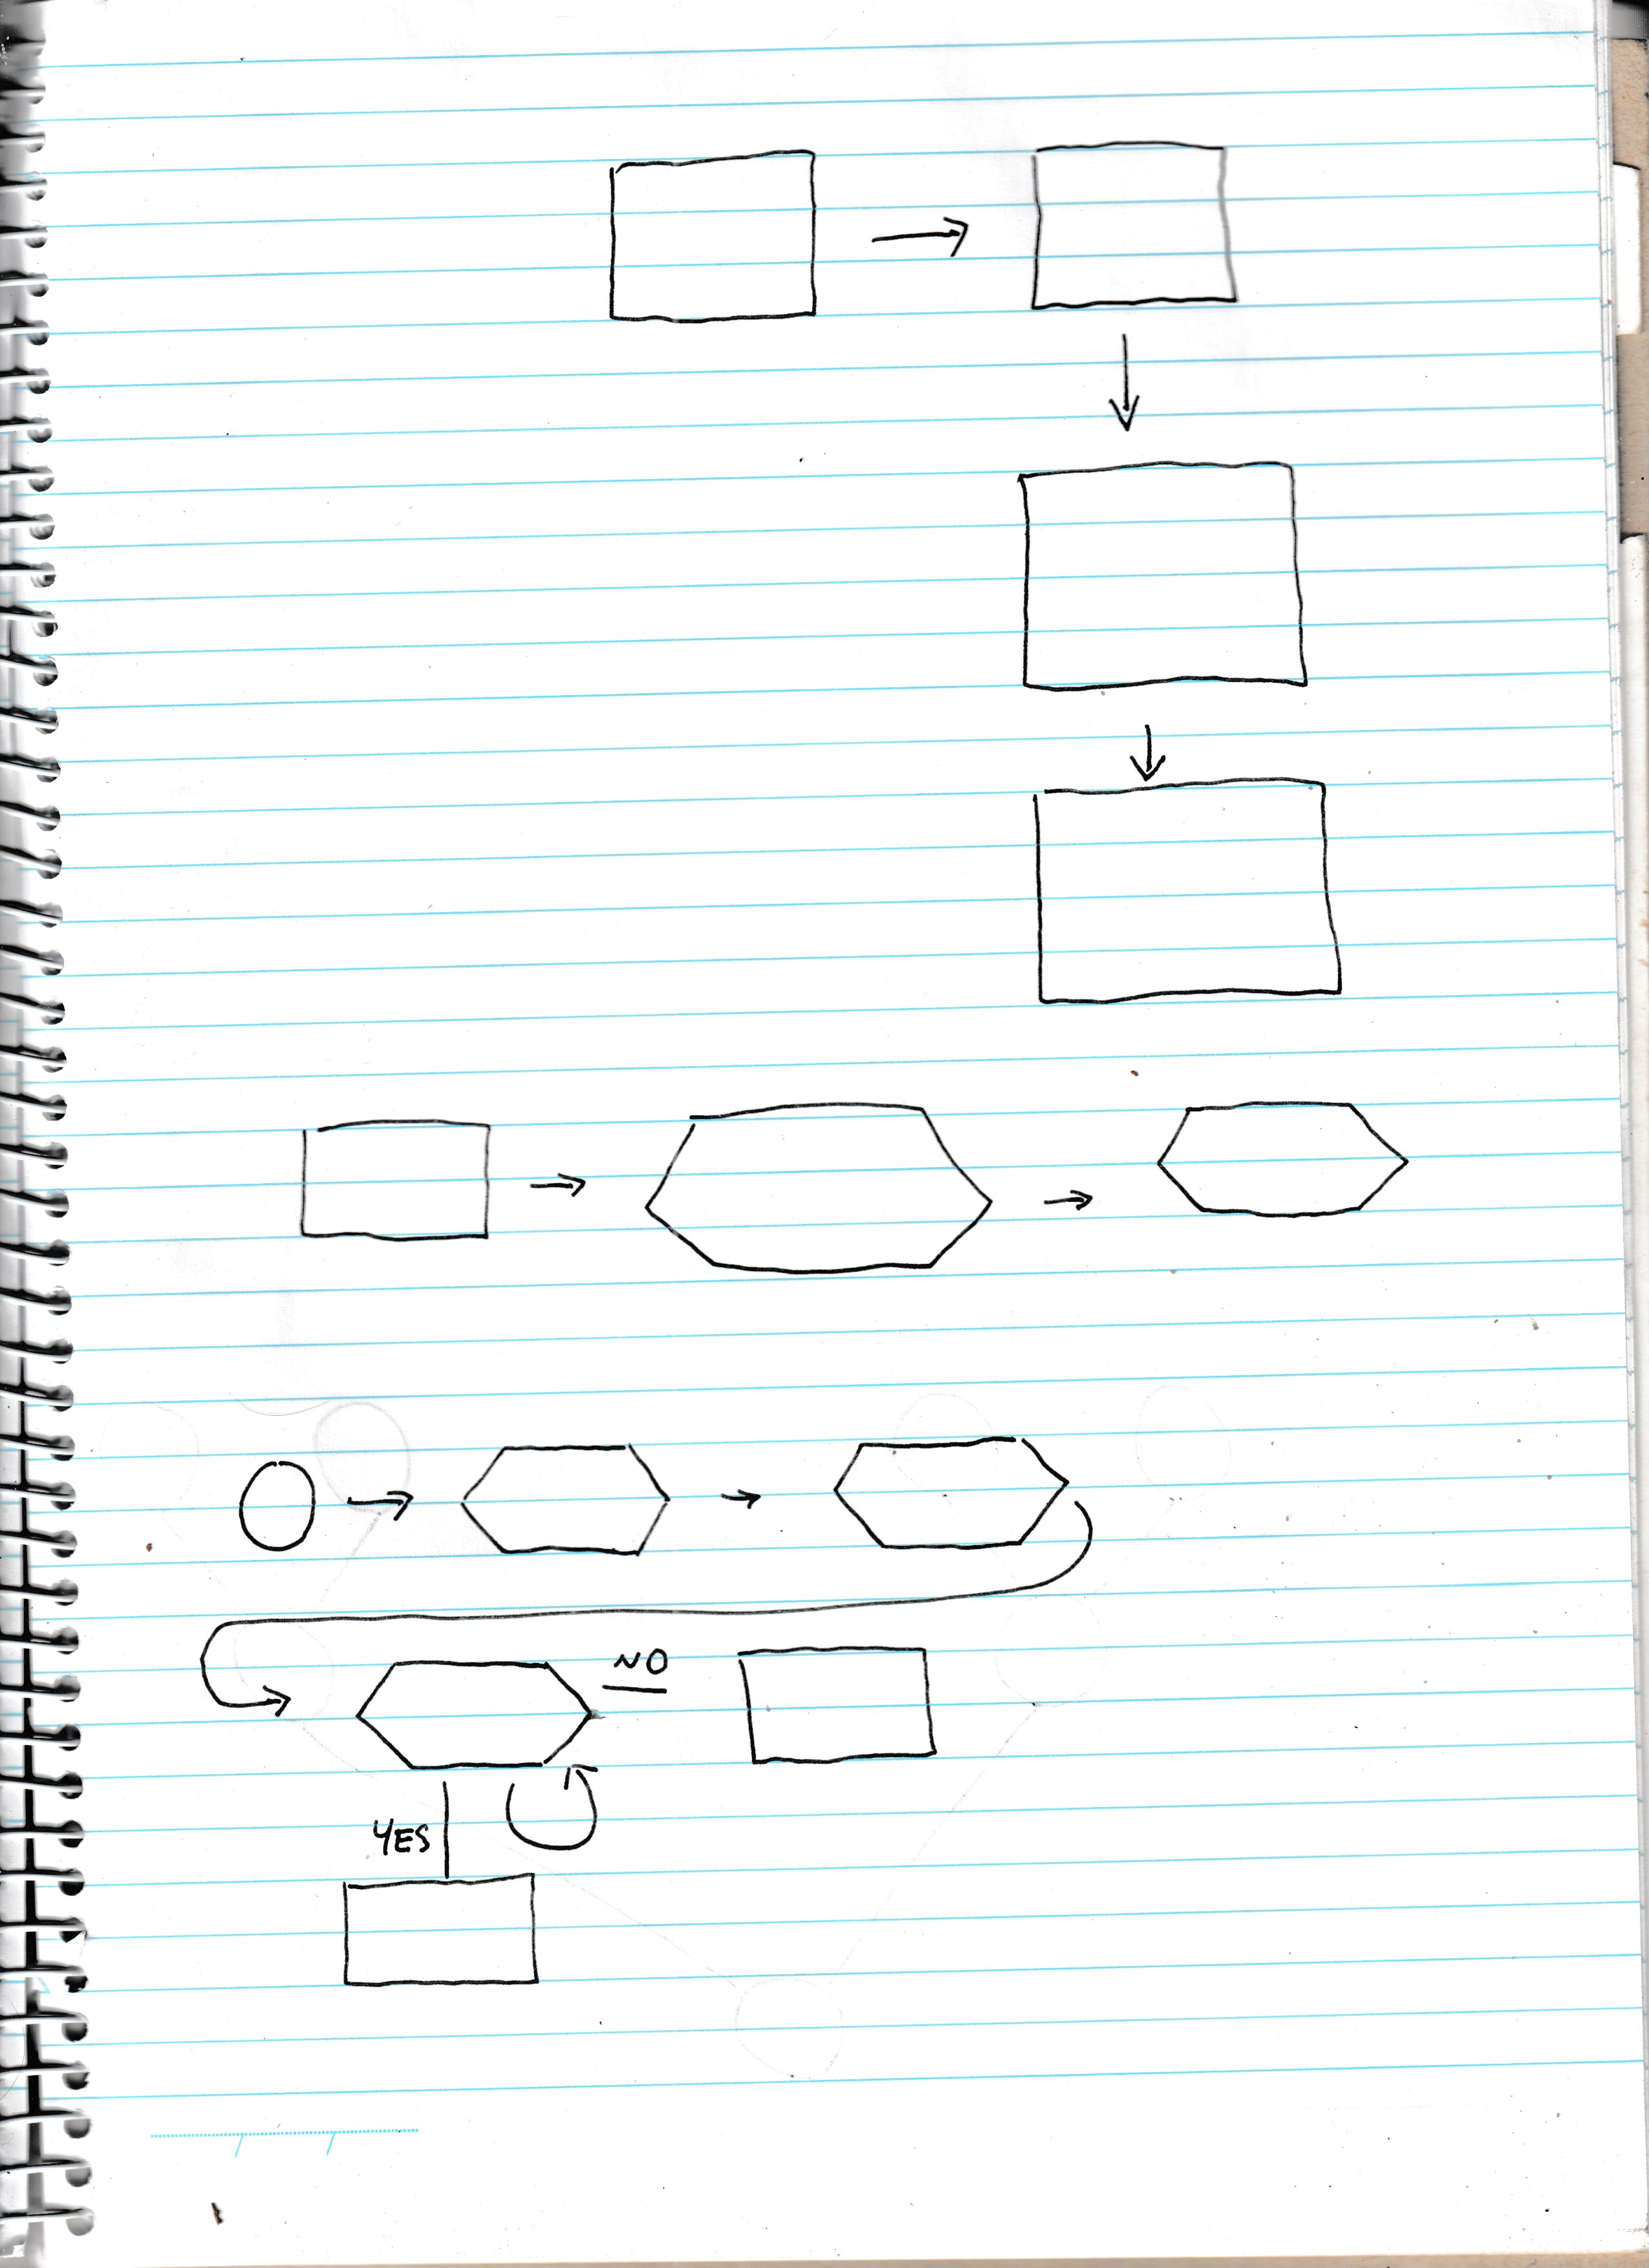 NO
YES